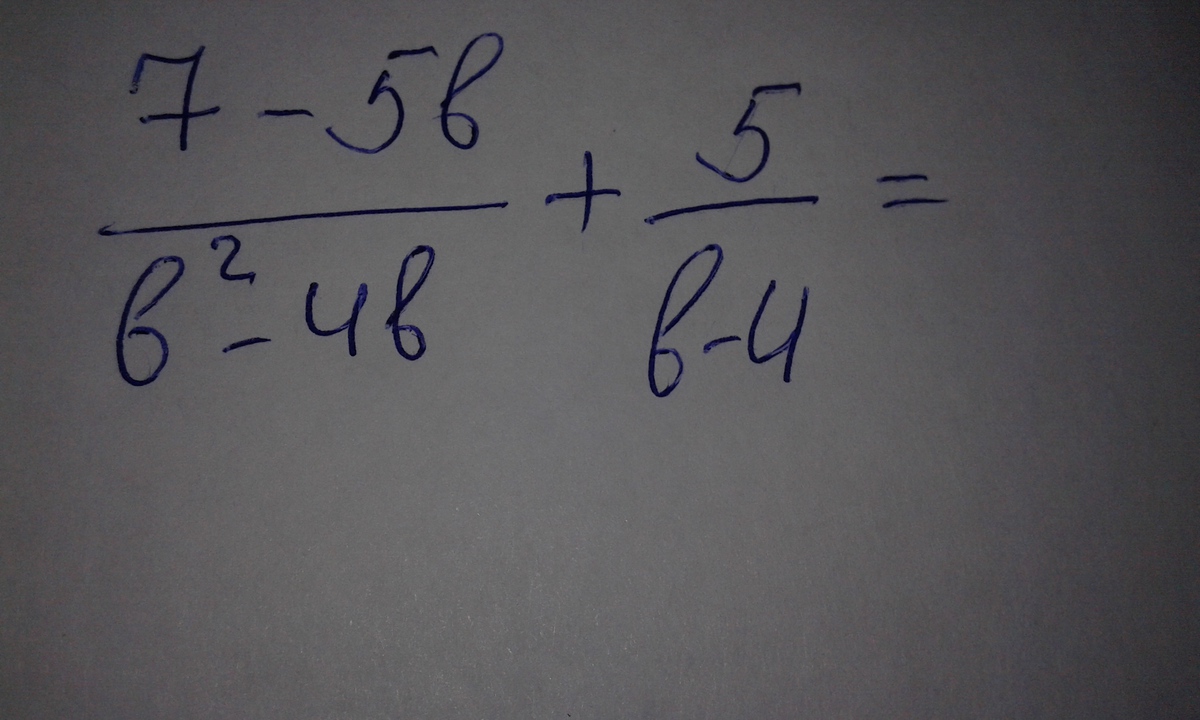 7 - 5в     5
――― + ――― =
в² - 4в   в - 4